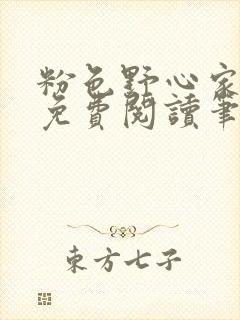 粉色野心家
免費閱讀筆
東方七子